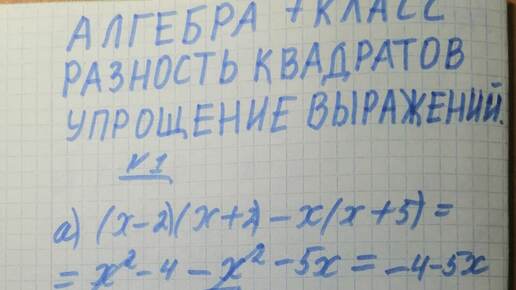 АЛГЕБРА 7 КЛАСС
РАЗНОСТЬ КВАДРАТОВ
УПРОЩЕНИЕ ВЫРАЖЕНИЙ.
№1
а) (x-2)(x+2) - x(x+5) =
= x² - 4 - x² - 5x = -4-5x